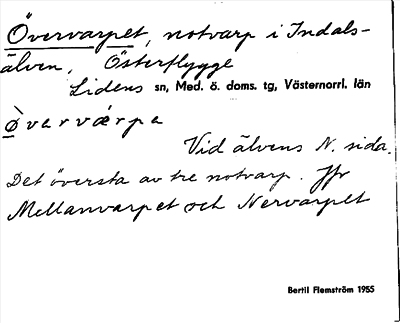 Övervarpet, notvarp i Indals-
älven, Österflygge
Lidens sn, Med. ö. doms. tg, Västernorrl. län
Ò̱varvǽrpa
Vid älvens N. sida.
Det översta av tre notvarp. Jfr
Mellanvarpet och Nervarpet
Bertil Flemström 1955